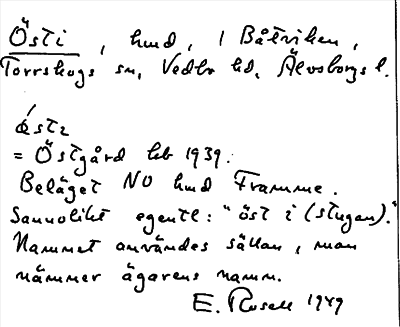 Östi, hmd, i Båtviken,
Torrskogs sn, Vedbo hd, Älvsborgs l.
= Östgård hb 1939.
Beläget NO hmd Framme.
Sannolikt egentl: "öst i (stugan)."
Namnet användes sällan, man
nämner ägarens namn.
E. Rosell 1949